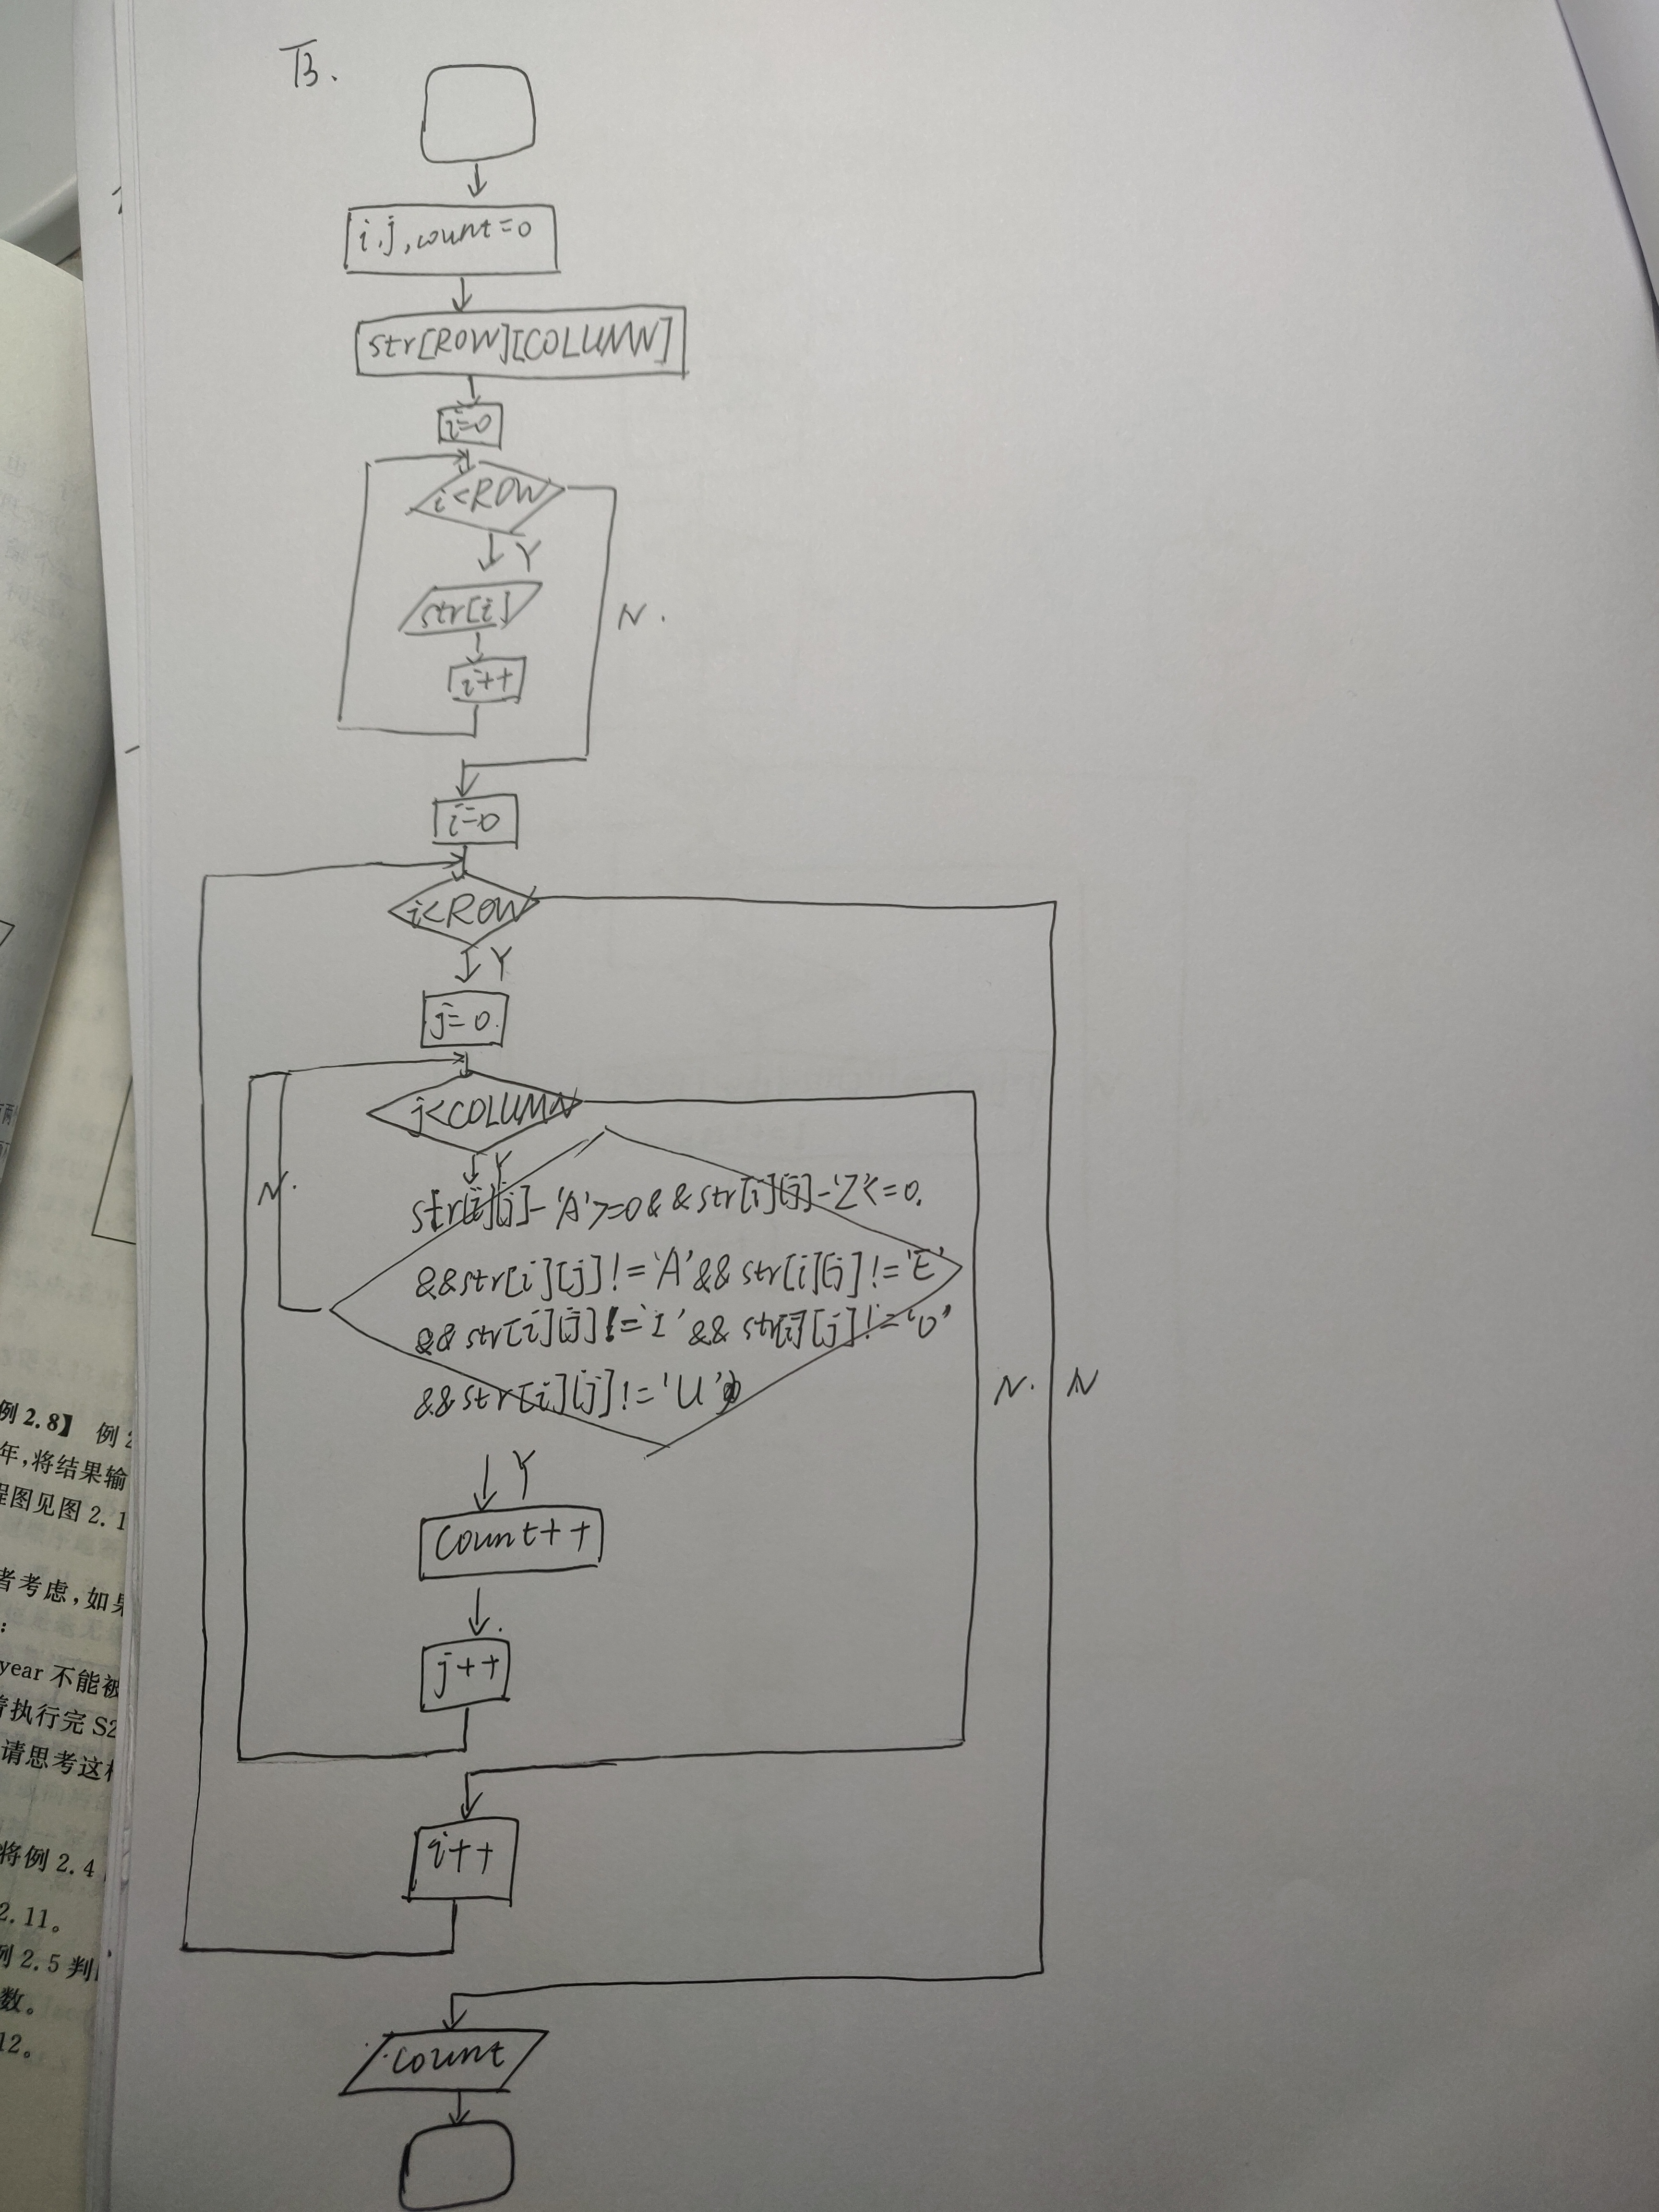 B.
i,j,count=0
str[ROW][COLUMN]
i=0
i<ROW
Y
str[i]
N.
i++
i=0
i<ROW
Y
j=0.
j<COLUMN
Y
N.
str[i][j]-'A'>=0&&str[i][j]-'Z'<=0.
&&str[i][j]!='A'&&str[i][j]!='E'
&&str[i][j]!='I'&&str[i][j]!='O'
&&str[i][j]!='U'
N. N
Y
count++
j++
i++
count
例2.8】 例
年,将结果输
程图见图2.1
者考虑,如果
:
year 不能被
执行完S2
请思考这样
将例2.4
2.11。
例2.5判
数。
12。